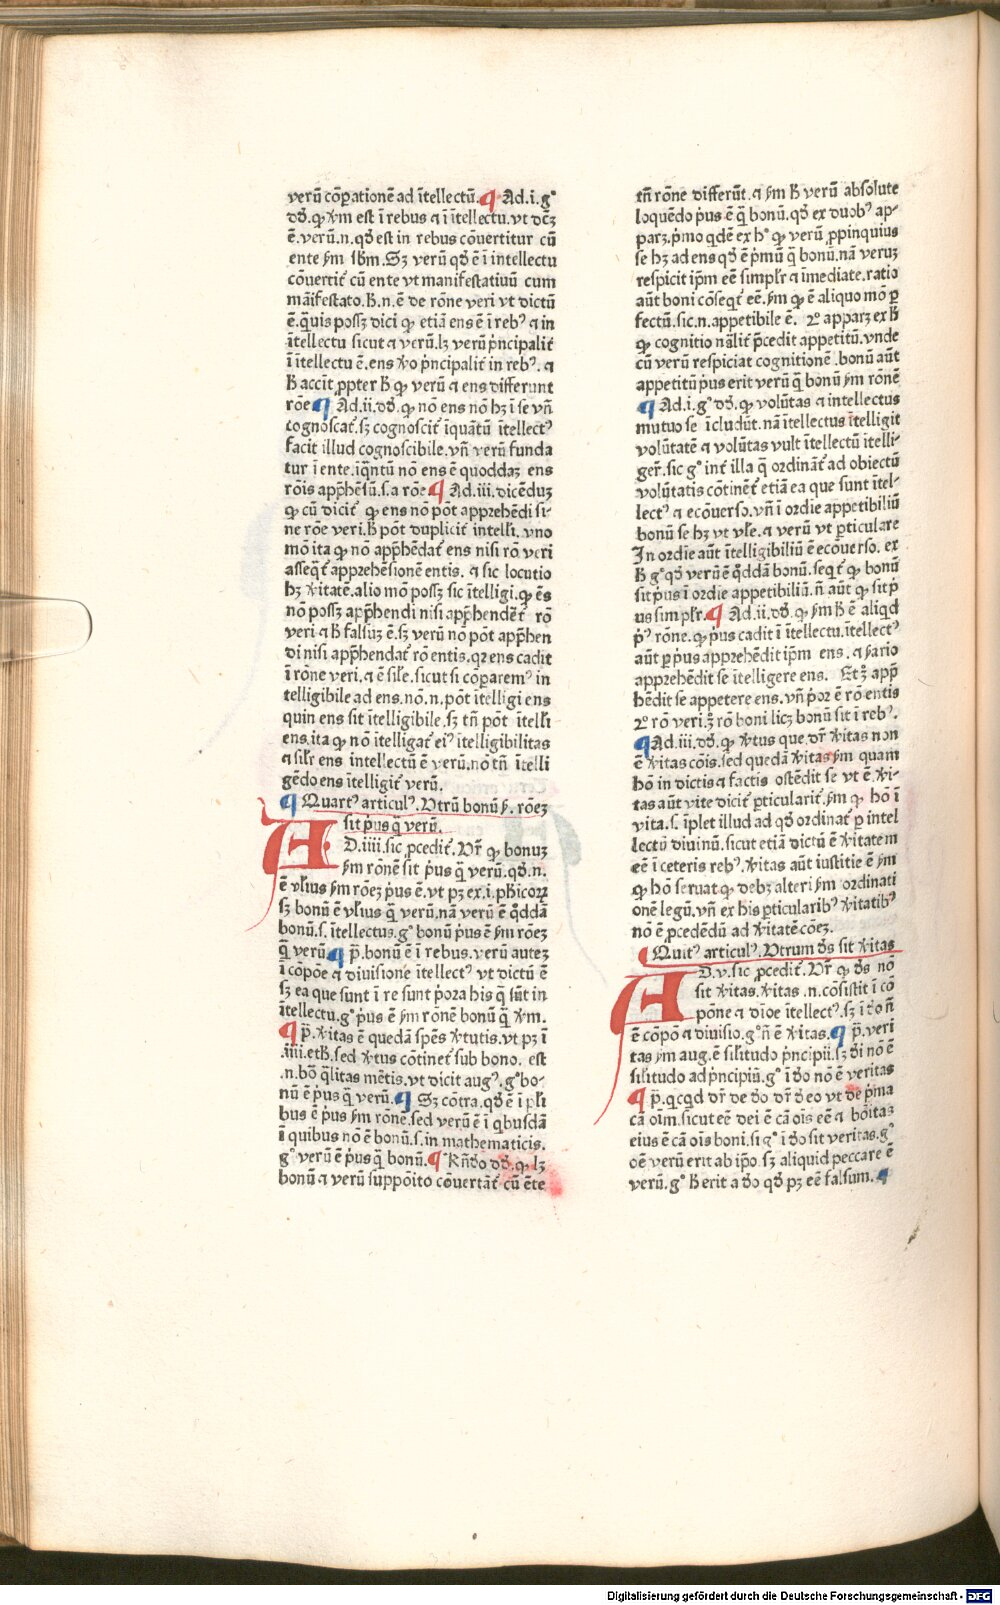 verū cōpationē ad ītellectū. ¶ Ad.i.gͦ
dō. ꝙ v̓m est ī rebus ⁊ ī ītellectu. vt dcꝫ
ē. verū.n. qd̓ est in rebus cōuertitur cū
ente ẜm ſbm̄. Sꝫ verū qd̓ ē ī intellectu
cōuertit̓ cū ente vt manifestatiuū cum
māifestato. h̓.n.ē de rōne veri vt dictū
ē. q̄uis possꝫ dici ꝙ etiā ens ē ī rebꝰ ⁊ in
ītellectu sicut ⁊ verū. lꝫ verū p̓ncipalit̓
ī ītellectu ē. ens v̓o p̓ncipalit̓ in rebꝰ. ⁊
h̓ accit̓ ꝓpter h̓ ꝙ verū ⁊ ens differunt
rōe ¶ Ad.ii.dō. ꝙ nō ens nō hꝫ ī se vn̄
cognoscat̓. sꝫ cognoscit̓ īquātū ītellectꝰ
facit illud cognoscibile. vn̄ verū funda
tur ī ente. īq̄ntū nō ens ē quoddaꝫ ens
rōis app̓hēsū. s. a rōe ¶ Ad.iii. dicēduꝫ
ꝙ cū dicit̓ ꝙ ens nō pōt apprehēdi si-
ne rōe veri. h̓ pōt duplicit̓ intelli. vno
mō ita ꝙ nō app̓hēdat̓ ens nisi rō veri
asseq̄t̓ apprehēsionē entis. ⁊ sic locutio
hꝫ v̓itatē. alio mō possꝫ sic ītelligi. ꝙ ēs
nō possꝫ app̓hendi nisi app̓hendēt̓ rō
veri ⁊ h̓ falsuꝫ ē. sꝫ verū nō pōt app̓hen
di nisi app̓hendat̓ rō entis. qꝛ ens cadit
ī rōne veri. ⁊ ē sil̓e. sicut si cōparemꝰ in
telligibile ad ens. nō.n. pōt ītelligi ens
quin ens sit ītelligibile. sꝫ tn̄ pōt ītell̓i
ens. ita ꝙ nō ītelligat̓ eiꝰ ītelligibilitas
⁊ sil̓r ens intellectū ē verū. nō tn̄ ītelli
gēdo ens ītelligit̓ verū.
¶ Quartꝰ articulꝰ. Utrū bonū ẜ. rōeꝫ
sit p̓us q̄ verū.
AD.iiii. sic ꝓcedit̓. Ur̄ ꝙ bonuꝫ
ẜm rōnē sit p̓us q̄ verū. qd̓.n.
ē vl̓ius ẜm rōeꝫ p̓us ē. vt pꝫ ex.i. ph̓icoꝝ
sꝫ bonū ē vl̓ius q̄ verū. nā verū ē qͦddā
bonū. s. ītellectus. gͦ bonū p̓us ē ẜm rōeꝫ
q̄ verū. ¶ p̄. bonū ē ī rebus. verū auteꝫ
ī cōpōe ⁊ diuisione ītellectꝰ vt dictū ē
sꝫ ea que sunt ī re sunt p̓ora his q̄ sūt in
ītellectu. gͦ p̓us ē ẜm rōnē bonū q̄ v̓m.
¶ p̄. v̓itas ē quedā sp̄es v̓tutis. vt pꝫ ī
.iiii. eth̓. sed v̓tus cōtinet̓ sub bono. est
.n. bōͣ q̄litas mētis. vt dicit augꝰ. gͦ bo-
nū ē p̓us q̄ verū. ¶ Sꝫ cōtra. qd̓ ē ī pl̓i
bus ē p̓us ẜm rōne. sed verū ē ī q̓busdā
ī quibus nō ē bonū. s. in mathematicis.
gͦ verū ē p̓us q̄ bonū. ¶ Rn̄do dō. ꝙ lꝫ
bonū ⁊ verū suppōito cōuertāt̓ cū ēte
tn̄ rōne differūt. ⁊ ẜm h̓ verū absolute
loquēdo p̓us ē q̄ bonū. qd̓ ex duobꝰ ap-
parꝫ. p̓mo qdē ex hͦ ꝙ verū ꝓpinquius
se hꝫ ad ens qd̓ ē p̓mū q̄ bonū. nā veruꝫ
respicit ip̄m eē simpl̓r ⁊ īmediate. ratio
aūt boni cōseqt̓ eē. ẜm ꝙ ē aliquo mō ꝑ
fectū. sic.n. appetibile ē. 2ͦ apparꝫ ex h̓
ꝙ cognitio nāl̓it̓ p̄cedit appetitū. vnde
cū verū respiciat cognitionē. bonū aūt
appetitū p̓us erit verū q̄ bonū ẜm rōnē
¶ Ad.i.gͦ dō. ꝙ volūtas ⁊ intellectus
mutuo se īcludūt. nā ītellectus ītelligit
volūtatē ⁊ volūtas vult ītellectū ītelli-
ger̄. sic gͦ int̓ illa q̄ ordināt̓ ad obiectū
volūtatis cōtinēt̓ etiā ea que sunt ītel-
lectꝰ ⁊ ecōuerso. vn̄ ī ordīe appetibiliū
bonū se hꝫ vt vl̓e. ⁊ verū vt ꝑticulare
In ordīe aūt ītelligibiliū ē ecōuerso. ex
h̓ gͦ qd̓ verū ē qͦddā bonū. seqt̓ ꝙ bonū
sit p̓us ī ordīe appetibiliū. n̄ aūt ꝙ sit p̓
us simpl̓r. ¶ Ad.ii.dō. ꝙ ẜm h̓ ē aliqd
p̓ꝰ rōne. ꝙ p̓us cadit ī ītellectu. ītellectꝰ
aūt ꝑ p̓us apprehēdit ip̄m ens. ⁊ ẜario
apprehēdit se ītelligere ens. Et 3ͦ app̓
hēdit se appetere ens. vn̄ p̓or ē rō entis
2ͦ rō veri. 3ͣ rō boni licꝫ bonū sit ī rebꝰ.
¶ Ad.iii.dō. ꝙ v̓tus que dr̄ v̓itas non
ē v̓itas cōis. sed quedā v̓itas ẜm quam
hō in dictis ⁊ factis ostēdit se vt ē. v̓i-
tas aūt vite dicit̓ ꝑticularit̓. ẜm ꝙ hō ī
vita. s. īplet illud ad qd̓ ordinat̓ ꝑ intel
lectū diuinū. sicut etiā dictū ē v̓itatem
eē ī ceteris rebꝰ. v̓itas aūt iustitie ē ẜm
ꝙ hō seruat ꝙ debꝫ alteri ẜm ordinati
onē legū. vn̄ ex his ꝑticularibꝰ v̓itatibꝰ
nō ē ꝓcedēdū ad v̓itatē cōeꝫ.
¶ Quītꝰ articulꝰ. Utrum d̓s sit v̓itas
AD.v. sic ꝓcedit̓. Ur̄ ꝙ d̓s nō
sit v̓itas. v̓itas.n. cōsistit ī cō
pōne ⁊ dīoe ītellectꝰ. sꝫ ī d̓o n̄
ē cōpō ⁊ diuisio. gͦ n̄ ē v̓itas. ¶ p̄. veri
tas ẜm aug. ē sil̓itudo p̓ncipii. sꝫ d̓i nō ē
sil̓itudo ad p̓ncipiū. gͦ ī d̓o nō ē veritas
¶ p̄. qcqd dr̄ de d̓o dr̄ d̓ eo vt de p̓ma
cā oīm. sicut eē dei ē cā oīs eē ⁊ bōitas
eius ē cā oīs boni. si gͦ ī d̓o sit veritas. gͦ
oē verū erit ab ip̄o. sꝫ aliquid peccare ē
verū. gͦ h̓ erit a d̓o qd̓ pꝫ eē falsum. ¶
Digitalisierung gefördert durch die Deutsche Forschungsgemeinschaft - DFG